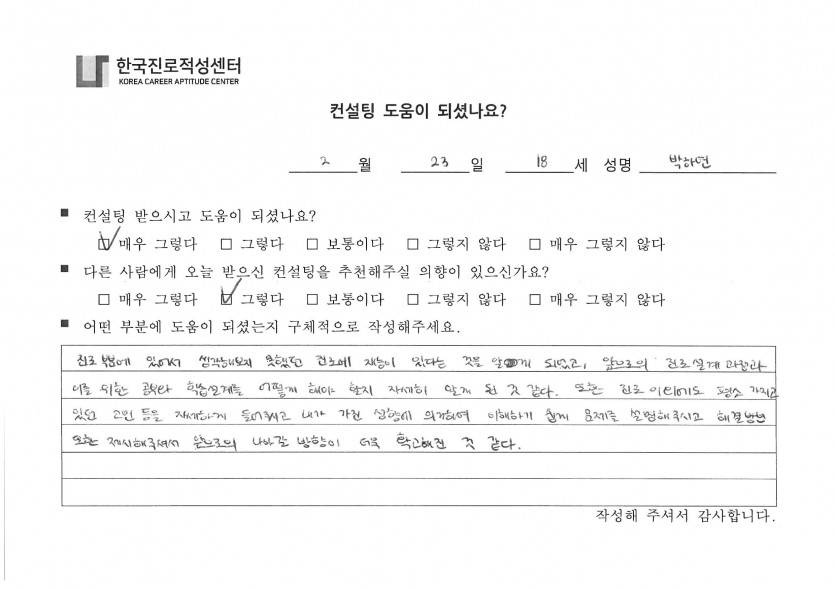 한국진로적성센터
KOREA CAREER APTITUDE CENTER
컨설팅 도움이 되셨나요?
2 월 23 일 18 세 성명 박하연
■ 컨설팅 받으시고 도움이 되셨나요?
☑ 매우 그렇다 □ 그렇다 □ 보통이다 □ 그렇지 않다 □ 매우 그렇지 않다
■ 다른 사람에게 오늘 받으신 컨설팅을 추천해주실 의향이 있으신가요?
□ 매우 그렇다 ☑ 그렇다 □ 보통이다 □ 그렇지 않다 □ 매우 그렇지 않다
■ 어떤 부분에 도움이 되었는지 구체적으로 작성해주세요.
진로 있어서 생각해보지 못했던 진로에 재능이 있다는 것을 알게 되었고, 앞으로의 진로설계 과정과
이를 위한 공부나 학습설계를 어떻게 해야 할지 자세히 알게 된 것 같다. 또한 진로 이외에도 평소 가지고
있던 고민 등을 자세하게 들어주시고 내가 가진 성향에 의거하여 이해하기 쉽게 문제를 설명해주시고 해결방안
또한 제시해주셔서 앞으로의 나아갈 방향이 더욱 확고해진 것 같다.
작성해 주셔서 감사합니다.